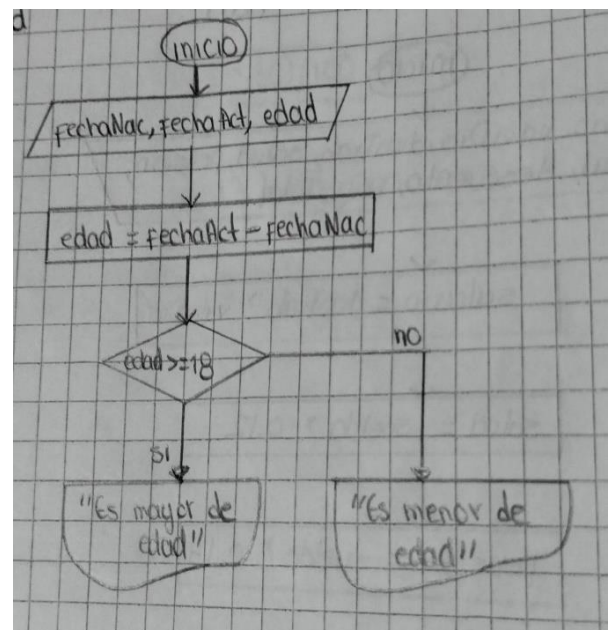 d
inicio
fechaNac, fechaAct, edad
edad = fechaAct - fechaNac
edad >= 18
no
si
"Es mayor de
edad"
"Es menor de
edad"